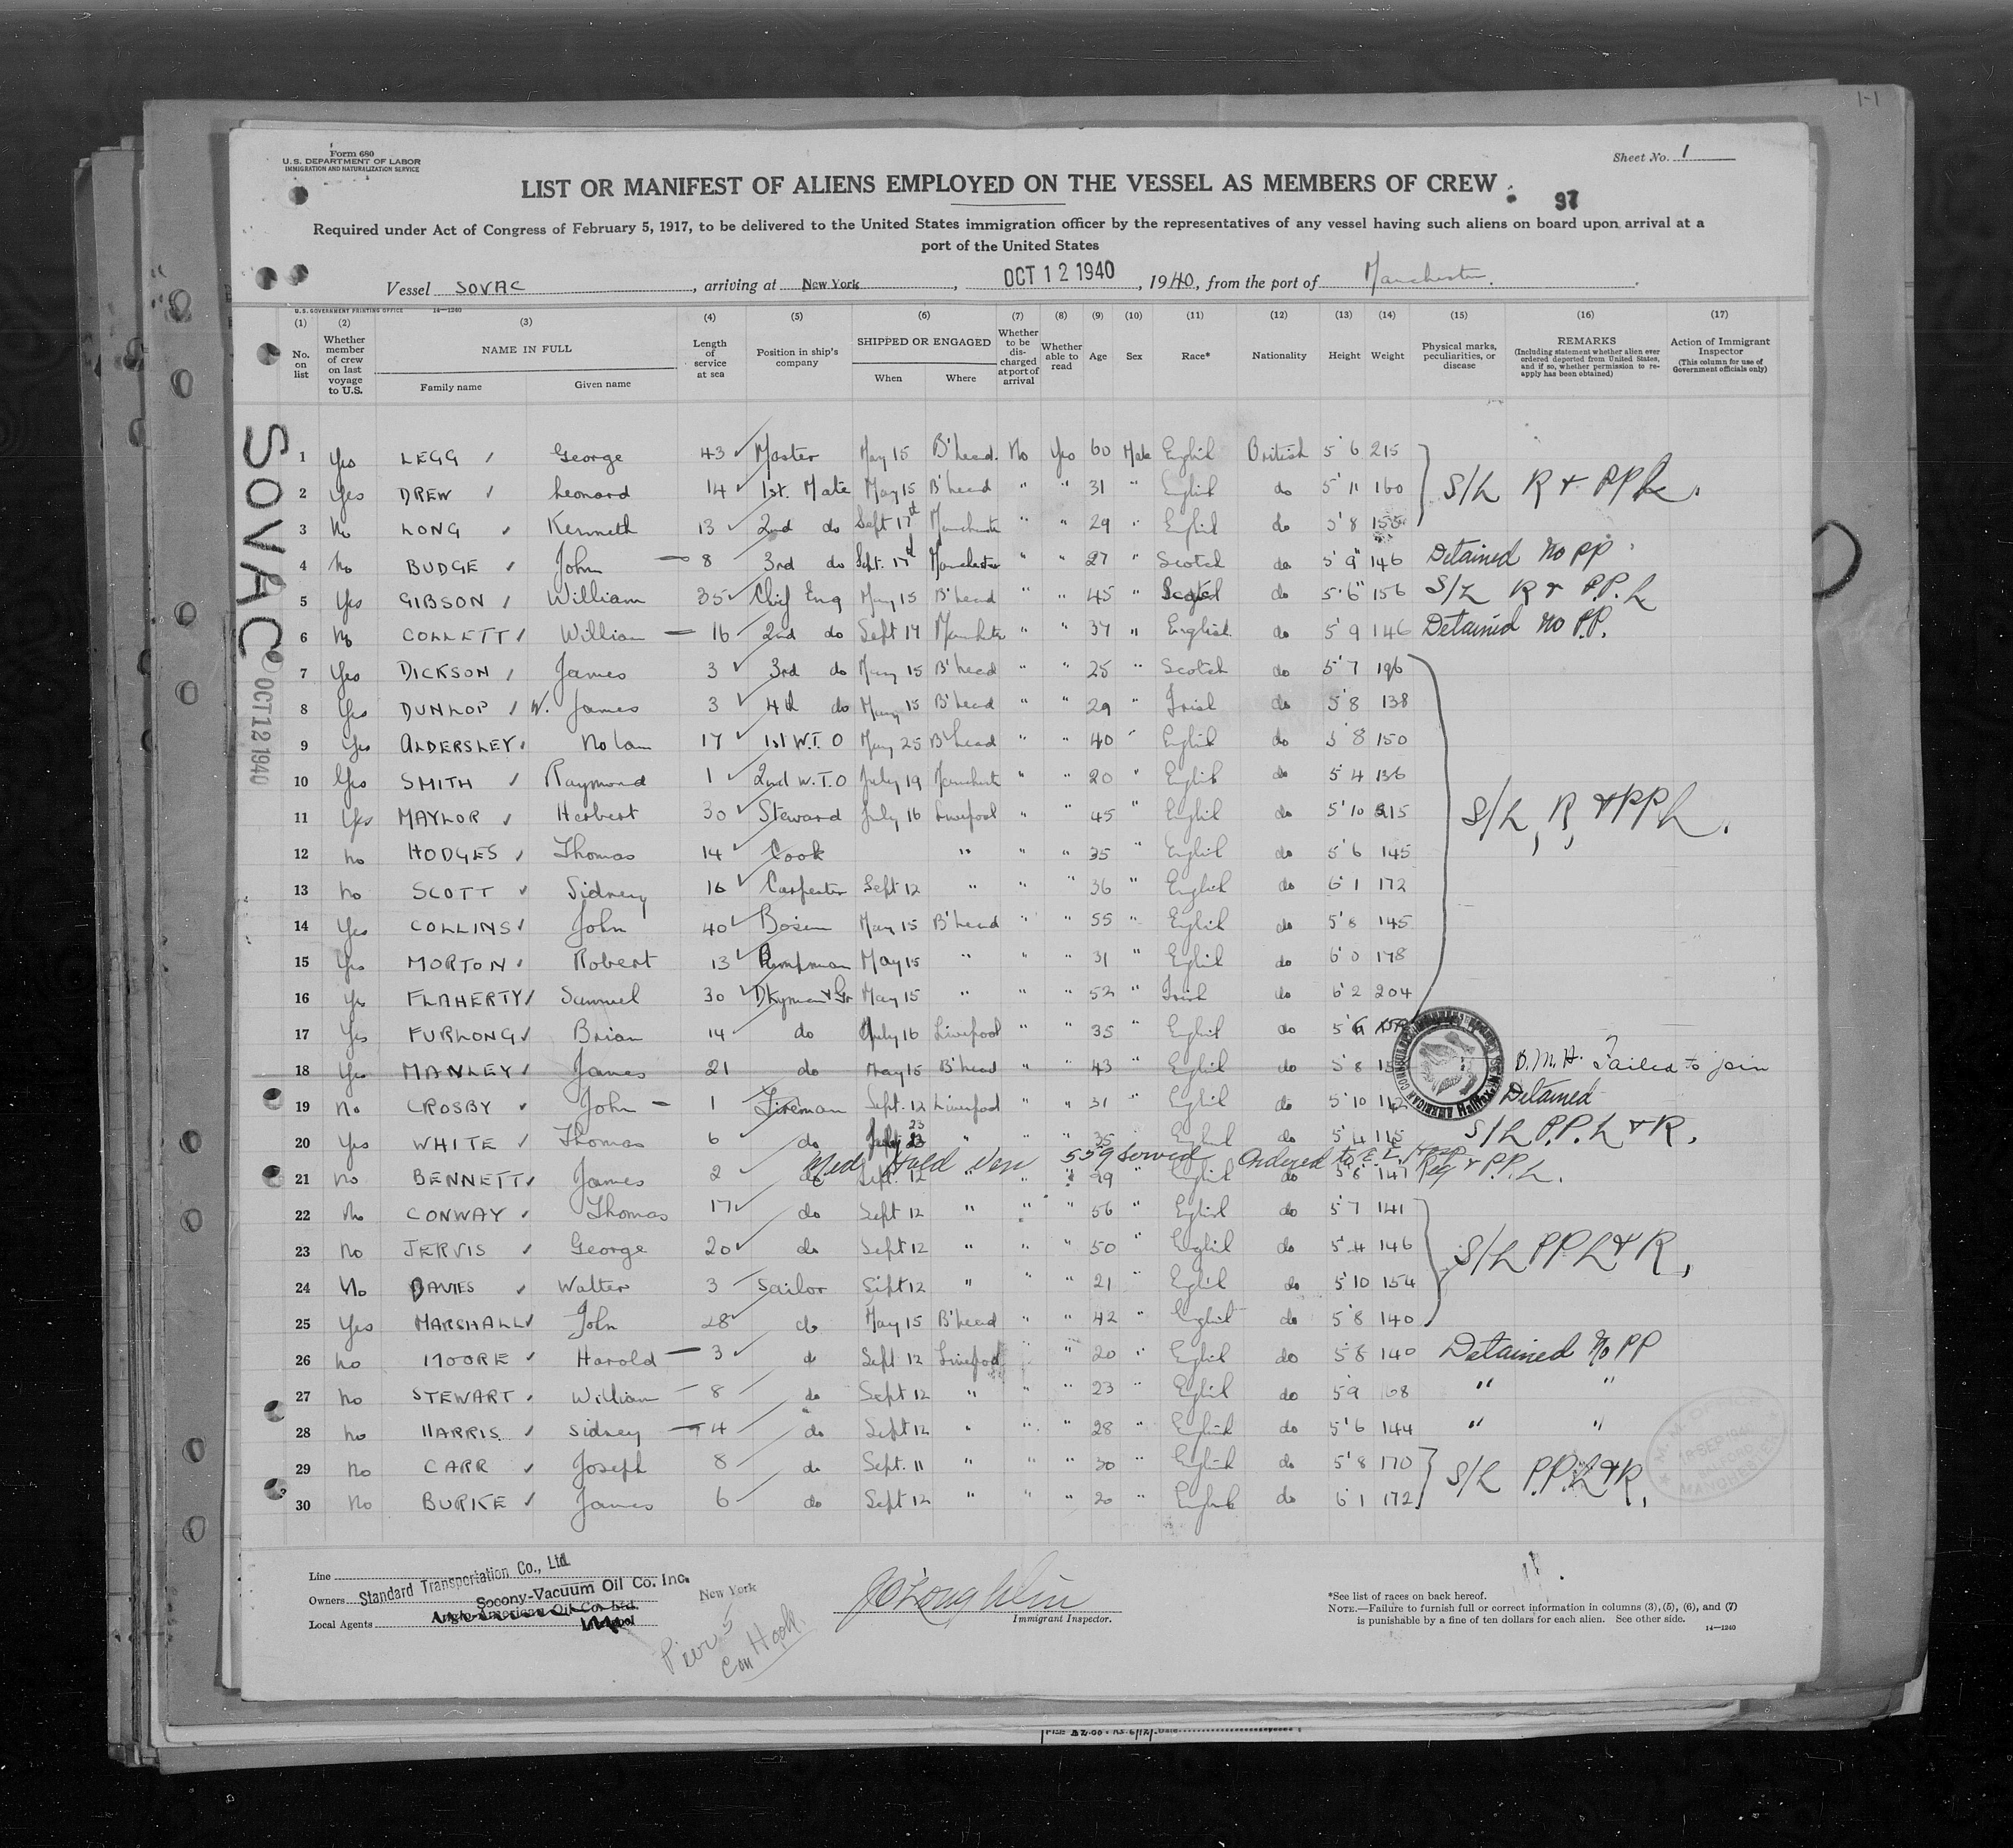 1-1
Form 680
U.S. DEPARTMENT OF LABOR
IMMIGRATION AND NATURALIZATION SERVICE
Sheet No. 1
LIST OR MANIFEST OF ALIENS EMPLOYED ON THE VESSEL AS MEMBERS OF CREW
97
Required under Act of Congress of February 5, 1917, to be delivered to the United States immigration officer by the representatives of any vessel having such aliens on board upon arrival at a
port of the United States
Vessel SOVAC, arriving at New York, OCT 12 1940, 1940, from the port of Manchester.
U.S. GOVERNMENT PRINTING OFFICE 14—1240
(1) (2) (3) (4) (5) (6) (7) (8) (9) (10) (11) (12) (13) (14) (15) (16) (17)
No. on list
Whether member of crew on last voyage to U.S.
NAME IN FULL
Family name Given name
Length of service at sea
Position in ship's company
SHIPPED OR ENGAGED
When Where
Whether to be discharged at port of arrival
Whether able to read
Age Sex Race* Nationality Height Weight
Physical marks, peculiarities, or disease
REMARKS
(Including statement whether alien ever ordered deported from United States, and if so, whether permission to reapply has been obtained)
Action of Immigrant Inspector
(This column for use of Government officials only)
SOVAC
OCT 12 1940
1 Yes LEGG George 43 Master May 15 B'head. No Yes 60 Male English British 5'6 215
2 Yes DREW Leonard 14 1st. Mate May 15 B'head " " 31 " English do 5'11 160 S/L R + PPL.
3 No LONG Kenneth 13 2nd do Sept 17th Manchester " " 29 " English do 5'8 155
4 No BUDGE John — 8 3rd do Sept. 17th Manchester " " 27 " Scotch do 5'9" 146 Detained No PP
5 Yes GIBSON William 35 Chief Eng May 15 B'head " " 45 " Scotch do 5'6" 156 S/L R + P.P.L
6 No COLLETT William — 16 2nd do Sept 17 Manchester " " 37 " English do 5'9 146 Detained No P.P.
7 Yes DICKSON James 3 3rd do May 15 B'head " " 25 " Scotch do 5'7 196
8 Yes DUNLOP W. James 3 4th do May 15 B'head " " 29 " Irish do 5'8 138
9 Yes ALDERSLEY Nolan 17 1st W.T.O May 25 B'head " " 40 " English do 5'8 150
10 Yes SMITH Raymond 1 2nd W.T.O July 19 Manchester " " 20 " English do 5'4 136
11 Yes MAYLOR Herbert 30 Steward July 16 Liverpool " " 45 " English do 5'10 215 S/L, R, + PPL.
12 No HODGES Thomas 14 Cook " " " 35 " English do 5'6 145
13 No SCOTT Sidney 16 Carpenter Sept 12 " " " 36 " English do 6'1 172
14 Yes COLLINS John 40 Bosun May 15 B'head " " 55 " English do 5'8 145
15 Yes MORTON Robert 13 Pumpman May 15 " " " 31 " English do 6'0 178
16 Yes FLAHERTY Samuel 30 Dkyman & Gr May 15 " " " 52 " Irish do 6'2 204
17 Yes FURLONG Brian 14 do July 16 Liverpool " " 35 " English do
18 Yes MANLEY James 21 do May 15 B'head " " 43 " English do 5'8 Failed to join
19 No CROSBY John — 1 Fireman Sept. 12 Liverpool " " 31 " English do 5'10 Detained
20 Yes WHITE Thomas 6 do July 23 " " " 35 English do 5'4 115 S/L P.P.L + R.
Med Hold 559 served Ordered to E.I.
21 No BENNETT James 2 do Sept. 12 " " English do 5'8 147 Reg + P.P.L.
22 No CONWAY Thomas 17 do Sept 12 " " " 56 " English do 5'7 141
23 No JERVIS George 20 do Sept 12 " " " 50 " English do 5'4 146 S/L PPL + R,
24 No DAVIES Walter 3 Sailor Sept 12 " " " 21 " English do 5'10 154
25 Yes MARSHALL John 28 do May 15 B'head " " 42 " English do 5'8 140
26 No MOORE Harold — 3 do Sept 12 Liverpool " " 20 " English do 5'8 140 Detained No PP
27 No STEWART William — 8 do Sept 12 " " " 23 " English do 5'9 168 " "
28 No HARRIS Sidney — 4 do Sept 12 " " " 28 " English do 5'6 144 " "
29 No CARR Joseph 8 do Sept. 11 " " " 30 " English do 5'8 170 S/L P.P.L + R,
30 No BURKE James 6 do Sept 12 " " " 20 " English do 6'1 172
Line
Owners Standard Transportation Co., Ltd.
Socony-Vacuum Oil Co. Inc. New York
Local Agents Anglo-American Oil Co. Ltd.
Pier 5
Con Hook.
Immigrant Inspector.
*See list of races on back hereof.
NOTE.—Failure to furnish full or correct information in columns (3), (5), (6), and (7)
is punishable by a fine of ten dollars for each alien. See other side.
14—1240